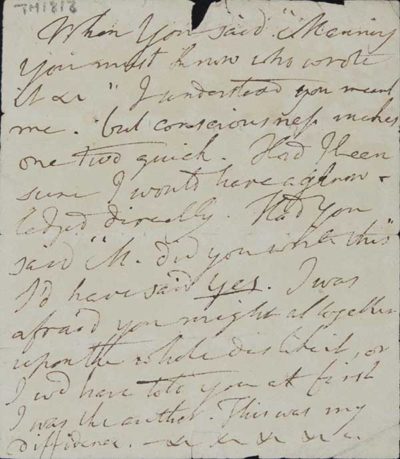 TM1818
When You said "Manning
you must know who wrote
it &c" I understood you meant
me. but consciousness makes
one two quick. Had I been
sure I would have acknow-
ledged directly. Had you
said "M. did you write this"
I'd have said yes. I was
afraid you might altogether
upon the whole dislike it, or
I wd have told you at first
I was the author. This was my
diffidence. — &c &c &c &c